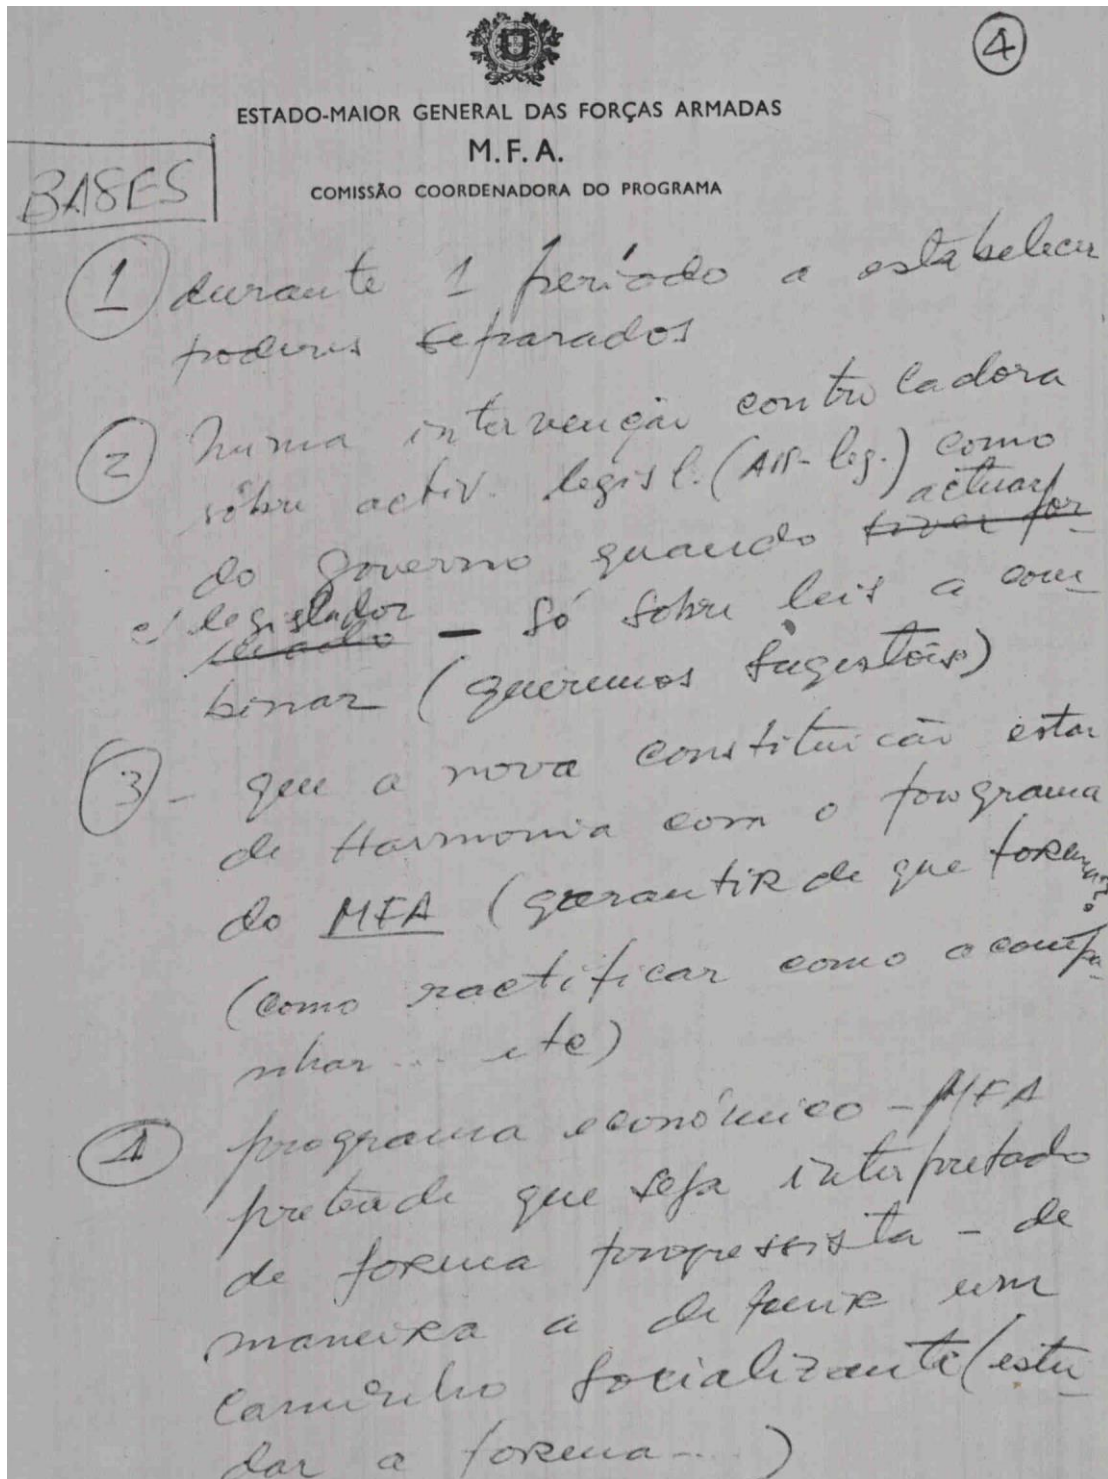 ④
ESTADO-MAIOR GENERAL DAS FORÇAS ARMADAS
M.F.A.
COMISSÃO COORDENADORA DO PROGRAMA
BASES
① durante 1 período a estabelecer
poderes separados
② numa intervenção controladora
sôbre activ. legisl. (      - leg.) como
actuar
do governo quando tiver for-
c/ legislador
— só sobre leis a com-
binar (queremos sugestões)
③ - que a nova constituição estar
de Harmonia com o programa
do MFA (garantir de que forma?
(como ractificar como acompa-
nhar... etc)
④ programa económico - MFA
pretende que seja interpretado
de forma progressista - de
maneira a definir um
caminho socializante (estu-
dar a forma ... )